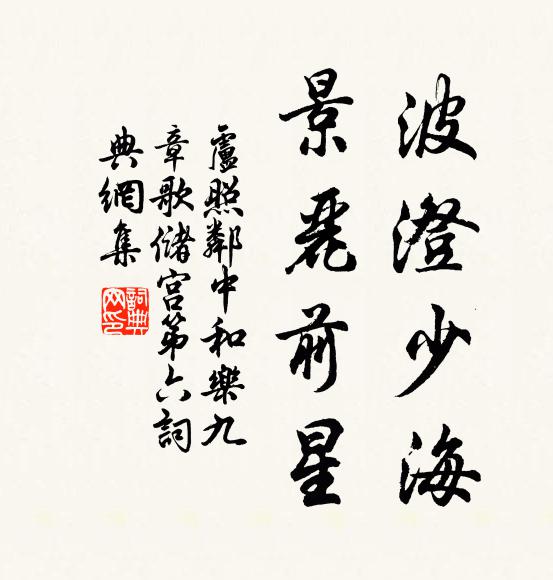 波澄少海
景麗前星
盧照鄰中和樂九
章歌儲宮第六詞
典網集
詞典
网印